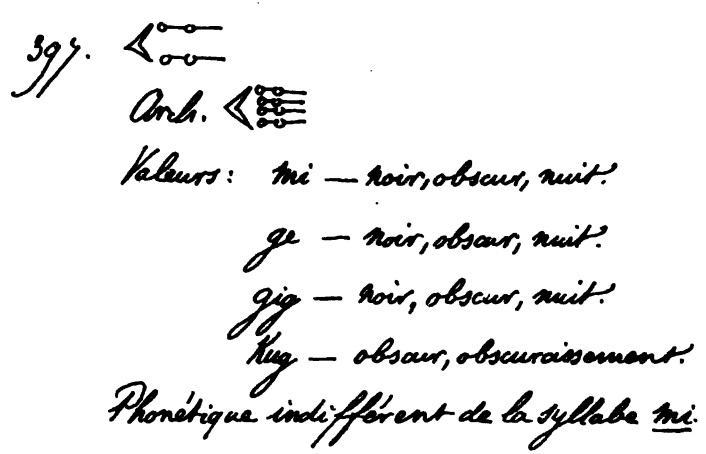 397.
Arch.
Valeurs: mi — noir, obscur, nuit.
ge — noir, obscur, nuit.
gig — noir, obscur, nuit.
Kug — obscur, obscurcissement.
Phonétique indifférent de la syllabe mi.